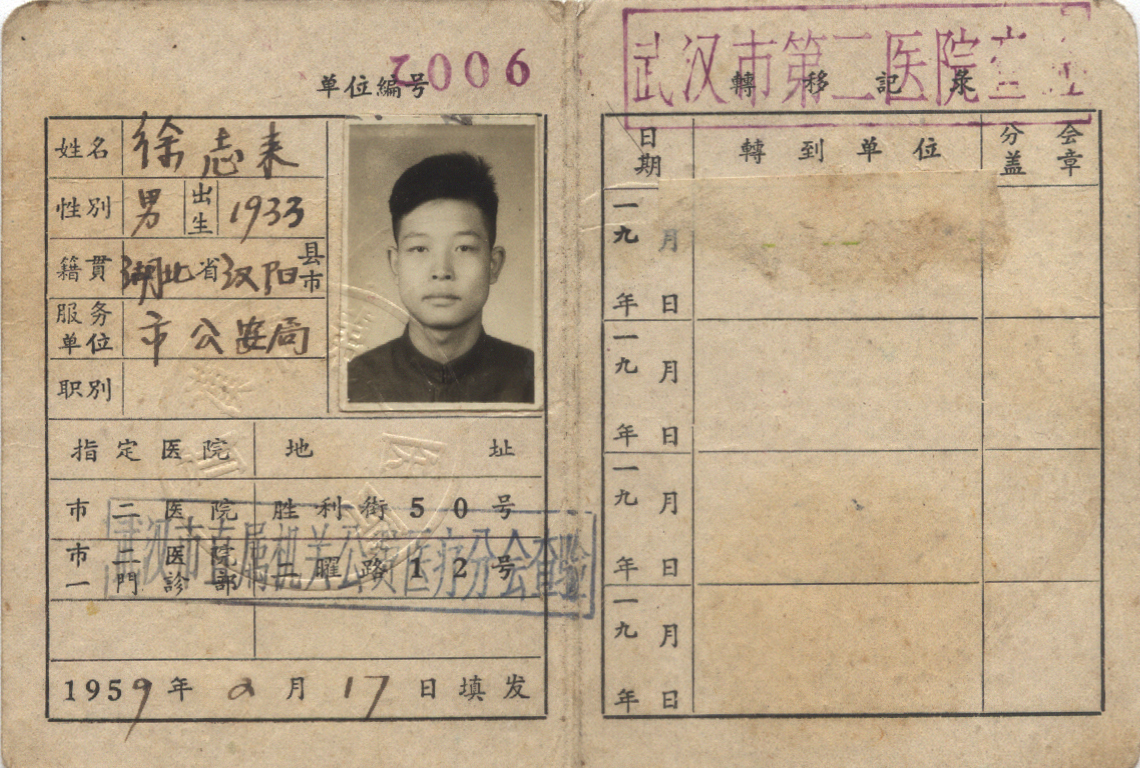 单位編号 2006
姓名 徐志来
性別 男 出生 1933
籍貫 湖北省汉阳县市
服务单位 市公安局
职別
指定医院 地址
市二医院 胜利街50号
市二医院一門診部 二曜路12号
武汉市直属机关公费医疗分会查验
1959年2月17日填发
武汉市第二医院查
轉移記录
日期 轉到单位 分会盖章
一九 月
年 日
一九 月
年 日
一九 月
年 日
一九 月
年 日